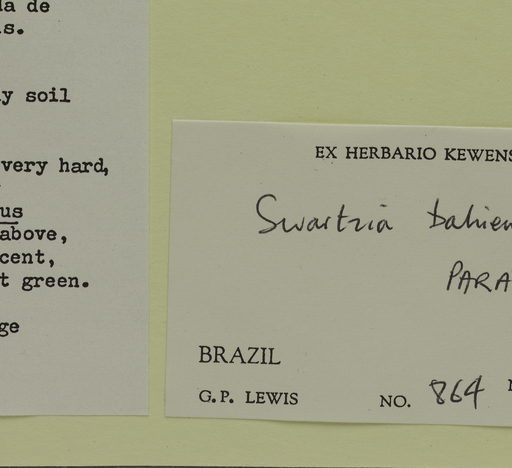 da de
s.
y soil
very hard,
us
above,
cent,
t green.
ge
EX HERBARIO KEWENS
Swartzia bahien
PARA
BRAZIL
G.P. LEWIS NO. 864